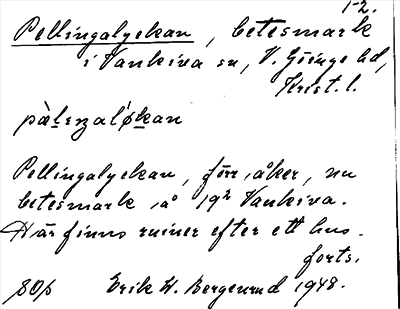 1-2.
Pellingalyckan, betesmark
i Vankiva sn, V. Göinge hd,
Krist. l.
Pellingalyckan, förr åker, nu
betesmark å 19² Vankiva.
Här finns ruiner efter ett hus.
forts.
Erik W. Bergenrud 1948.